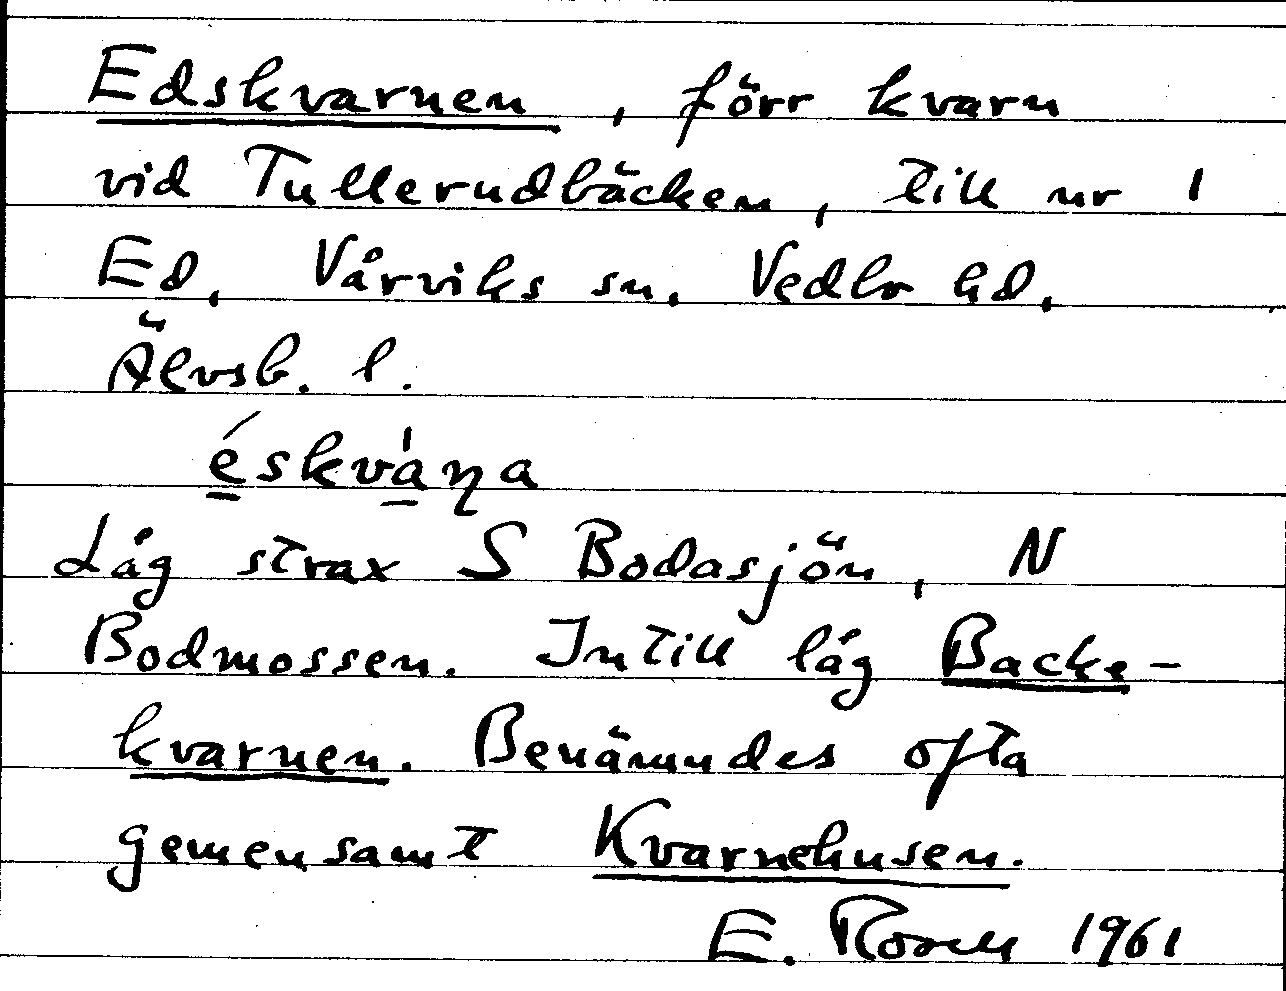 Edskvarnen, förr kvarn
vid Tullerudbäcken, till nr 1
Ed, Vårviks sn. Vedbo hd,
Älvsb. l.
éskvàṇa
Låg strax S Bodasjön, N
Bodmossen. Intill låg Backe-
kvarnen. Benämndes ofta
gemensamt Kvarnehusen.
E. Rosell 1961